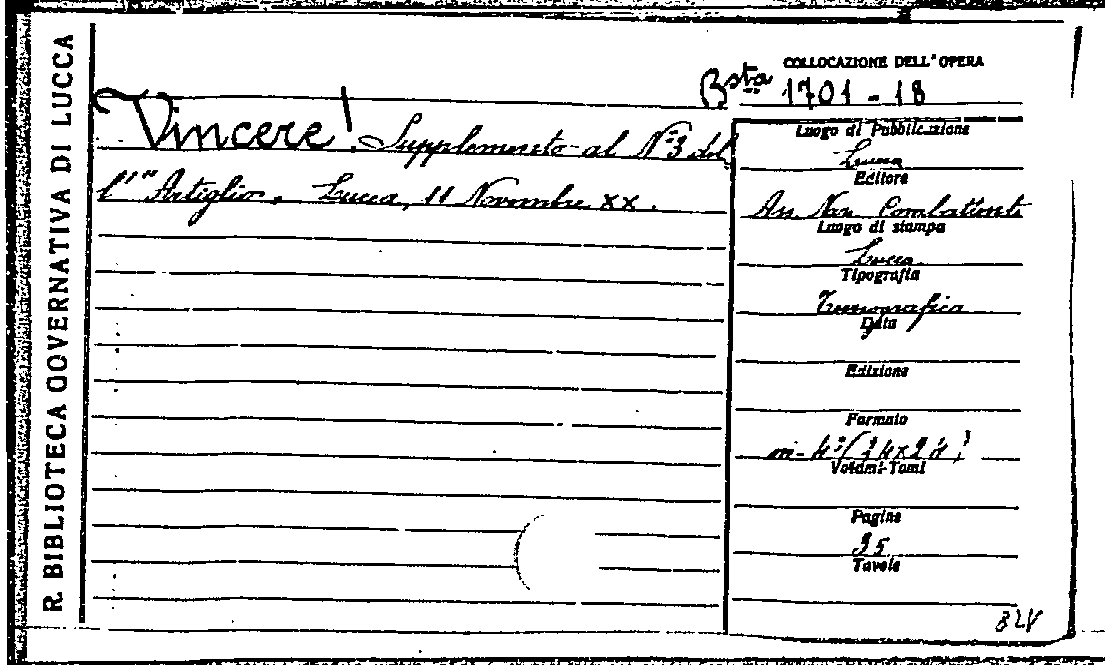 R. BIBLIOTECA GOVERNATIVA DI LUCCA
COLLOCAZIONE DELL'OPERA
Bsta 1701 - 18
Vincere! Supplemento al N° 3 del
l'"Artiglio. Lucca, 11 Novembre XX.
Luogo di Pubblicazione
Lucca
Editore
Ass Naz Combattenti
Luogo di stampa
Lucca
Tipografia
Data
Edizione
Formato
in-4°
Volumi-Tomi
Pagine
35
Tavole